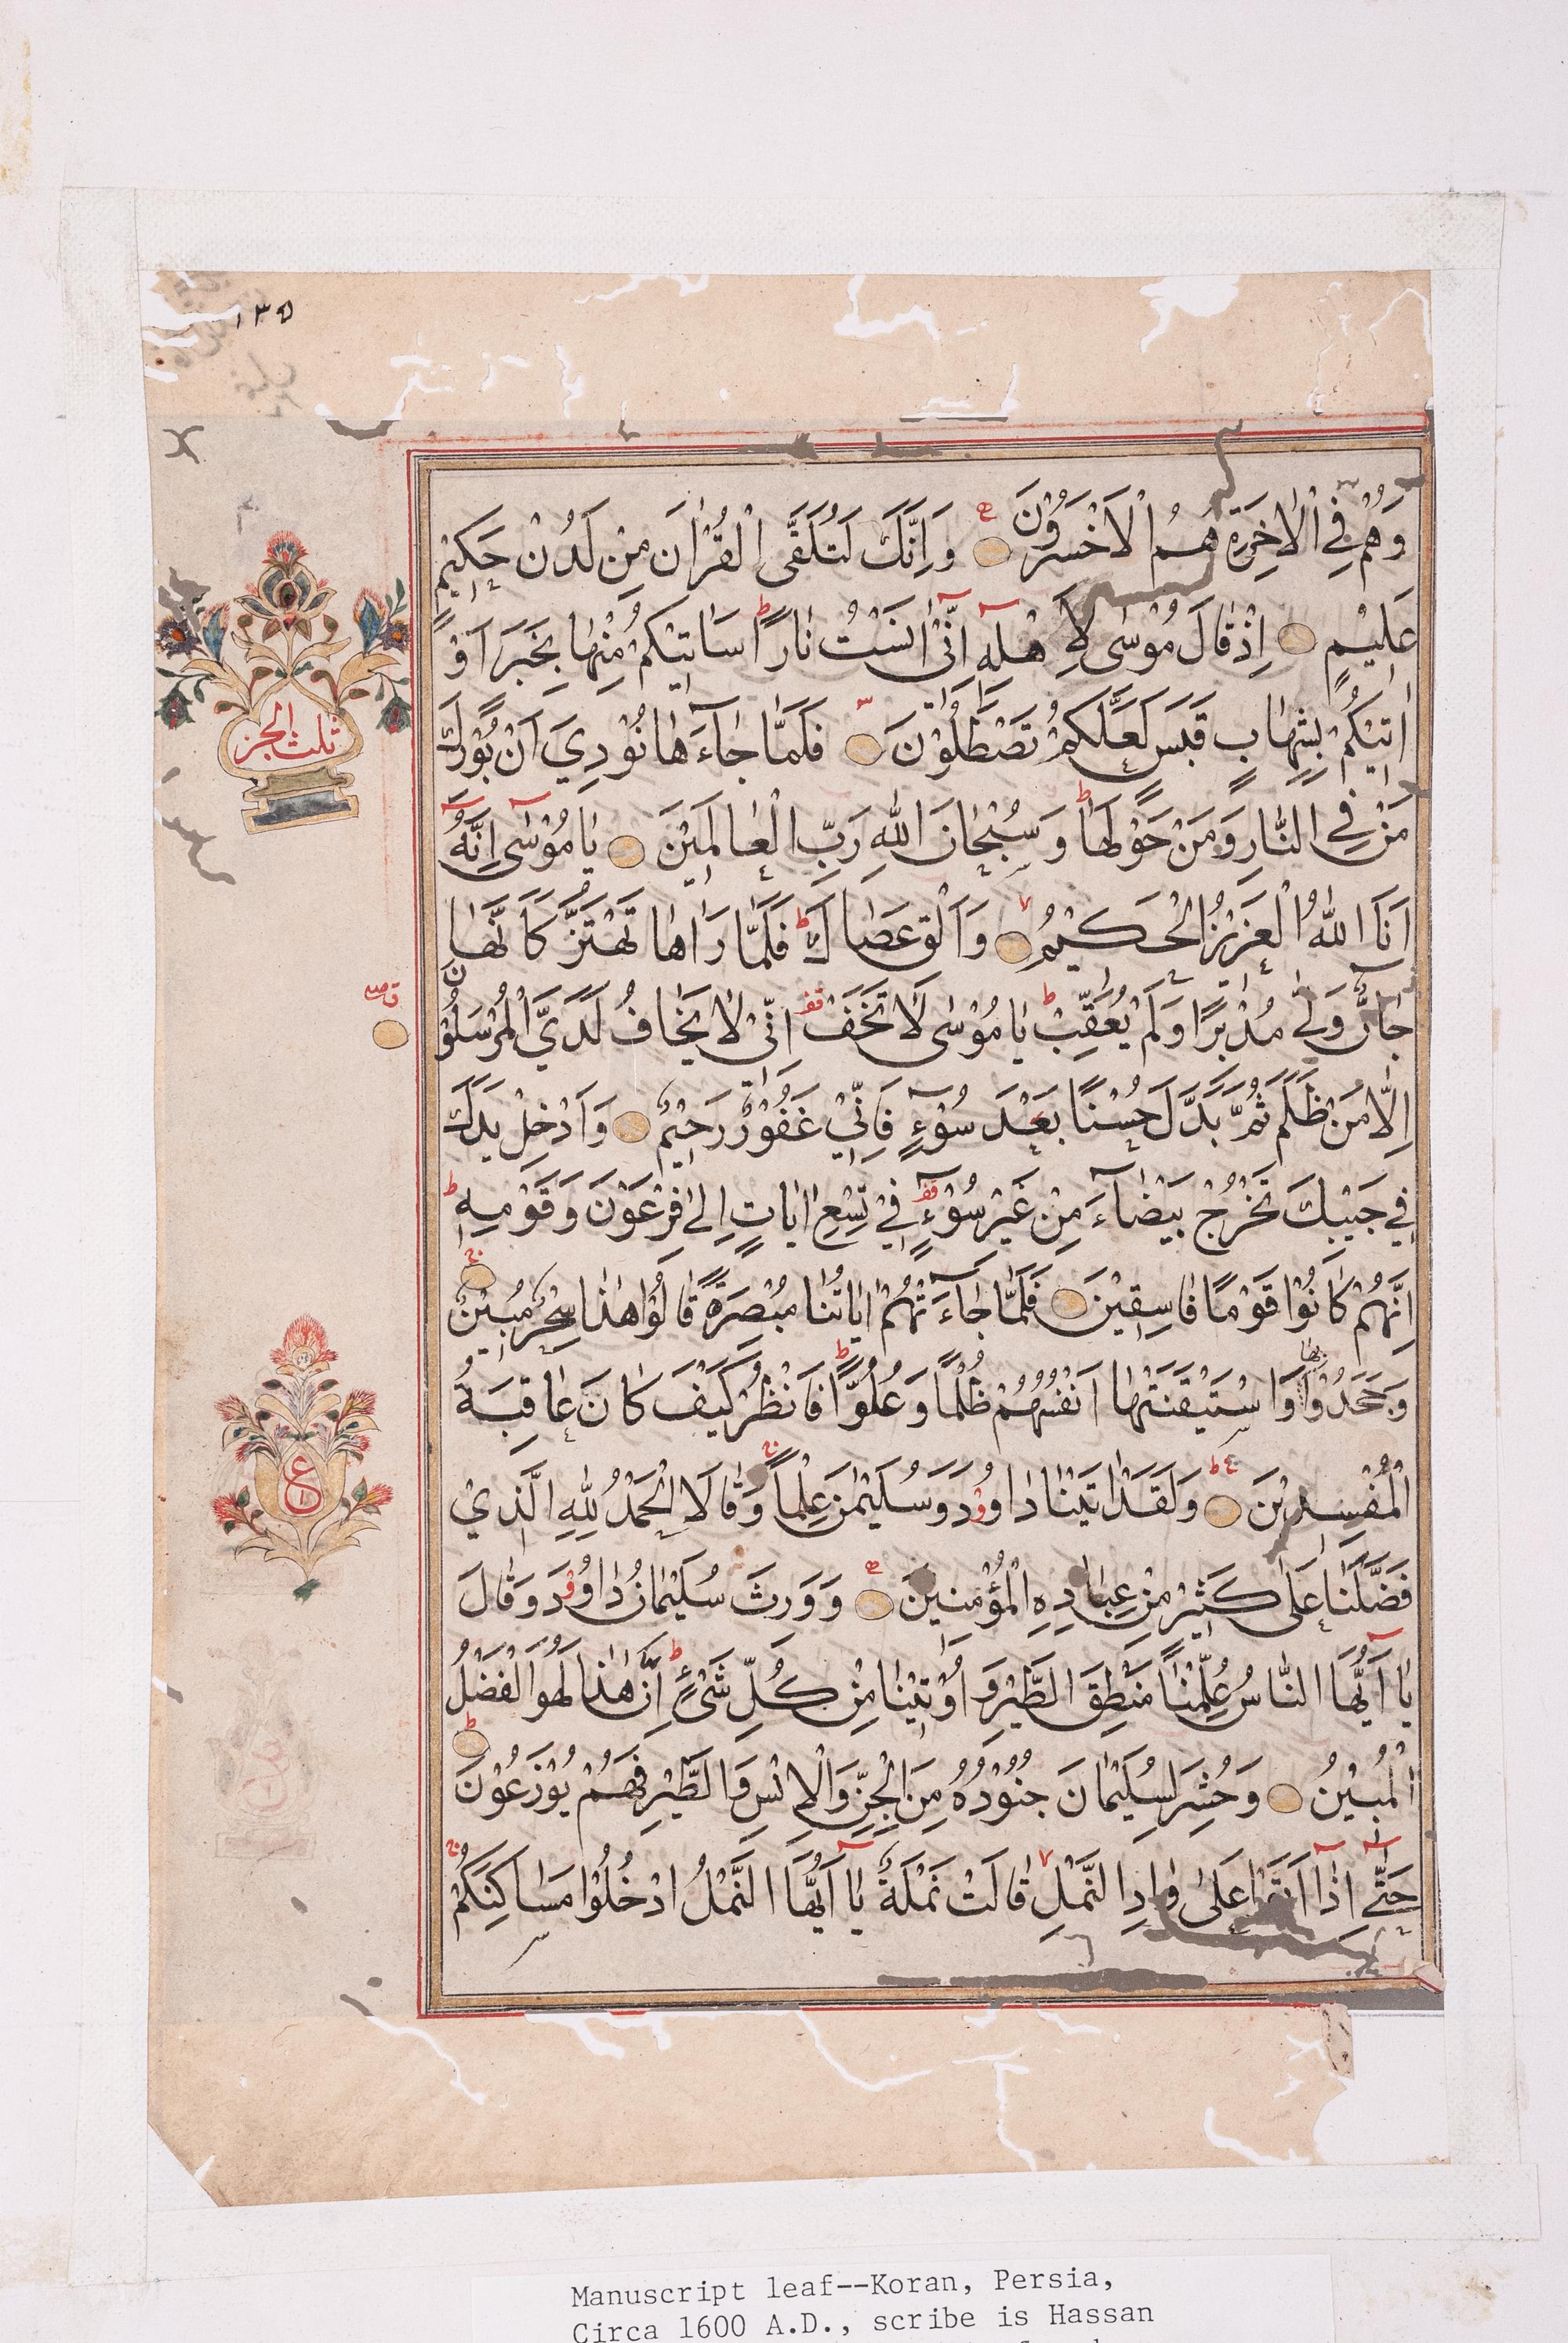 ١٣٥
وَهُمْ فِي الْاٰخِرَةِ هُمُ الْاَخْسَرُوْنَ وَاِنَّكَ لَتُلَقَّى الْقُرْاٰنَ مِنْ لَدُنْ حَكِيْمٍ
عَلِيْمٍ اِذْ قَالَ مُوْسٰى لِاَهْلِهٖ اِنِّىْ اٰنَسْتُ نَارًا ط سَاٰتِيْكُمْ مِنْهَا بِخَبَرٍ اَوْ
اٰتِيْكُمْ بِشِهَابٍ قَبَسٍ لَعَلَّكُمْ تَصْطَلُوْنَ فَلَمَّا جَاءَهَا نُوْدِيَ اَنْ بُوْرِكَ
مَنْ فِي النَّارِ وَمَنْ حَوْلَهَا ط وَسُبْحَانَ اللّٰهِ رَبِّ الْعَالَمِيْنَ يَا مُوْسٰى اِنَّهٗ
اَنَا اللّٰهُ الْعَزِيْزُ الْحَكِيْمُ وَاَلْقِ عَصَاكَ ط فَلَمَّا رَاٰهَا تَهْتَزُّ كَاَنَّهَا
جَانٌّ وَلّٰى مُدْبِرًا وَلَمْ يُعَقِّبْ ط يَا مُوْسٰى لَا تَخَفْ قف اِنِّىْ لَا يَخَافُ لَدَيَّ الْمُرْسَلُوْنَ
اِلَّا مَنْ ظَلَمَ ثُمَّ بَدَّلَ حُسْنًا بَعْدَ سُوْءٍ فَاِنِّيْ غَفُوْرٌ رَحِيْمٌ وَاَدْخِلْ يَدَكَ
فِي جَيْبِكَ تَخْرُجْ بَيْضَاءَ مِنْ غَيْرِ سُوْءٍ قف فِيْ تِسْعِ اٰيَاتٍ اِلٰى فِرْعَوْنَ وَقَوْمِهٖ ط
اِنَّهُمْ كَانُوْا قَوْمًا فَاسِقِيْنَ فَلَمَّا جَاءَتْهُمْ اٰيَاتُنَا مُبْصِرَةً قَالُوْا هٰذَا سِحْرٌ مُبِيْنٌ
وَجَحَدُوْا بِهَا وَاسْتَيْقَنَتْهَا اَنْفُسُهُمْ ظُلْمًا وَعُلُوًّا ط فَانْظُرْ كَيْفَ كَانَ عَاقِبَةُ
الْمُفْسِدِيْنَ وَلَقَدْ اٰتَيْنَا دَاوُوْدَ وَسُلَيْمٰنَ عِلْمًا وَقَالَا الْحَمْدُ لِلّٰهِ الَّذِيْ
فَضَّلَنَا عَلٰى كَثِيْرٍ مِنْ عِبَادِهِ الْمُؤْمِنِيْنَ وَوَرِثَ سُلَيْمَانُ دَاوُوْدَ وَقَالَ
يَا اَيُّهَا النَّاسُ عُلِّمْنَا مَنْطِقَ الطَّيْرِ وَاُوْتِيْنَا مِنْ كُلِّ شَىْءٍ ط اِنَّ هٰذَا لَهُوَ الْفَضْلُ
الْمُبِيْنُ وَحُشِرَ لِسُلَيْمَانَ جُنُوْدُهُ مِنَ الْجِنِّ وَالْاِنْسِ وَالطَّيْرِ فَهُمْ يُوْزَعُوْنَ
حَتّٰى اِذَا اَتَوْا عَلٰى وَادِ النَّمْلِ قَالَتْ نَمْلَةٌ يَا اَيُّهَا النَّمْلُ ادْخُلُوْا مَسَاكِنَكُمْ
ثلث الجز
ع
Manuscript leaf--Koran, Persia,
Circa 1600 A.D., scribe is Hassan